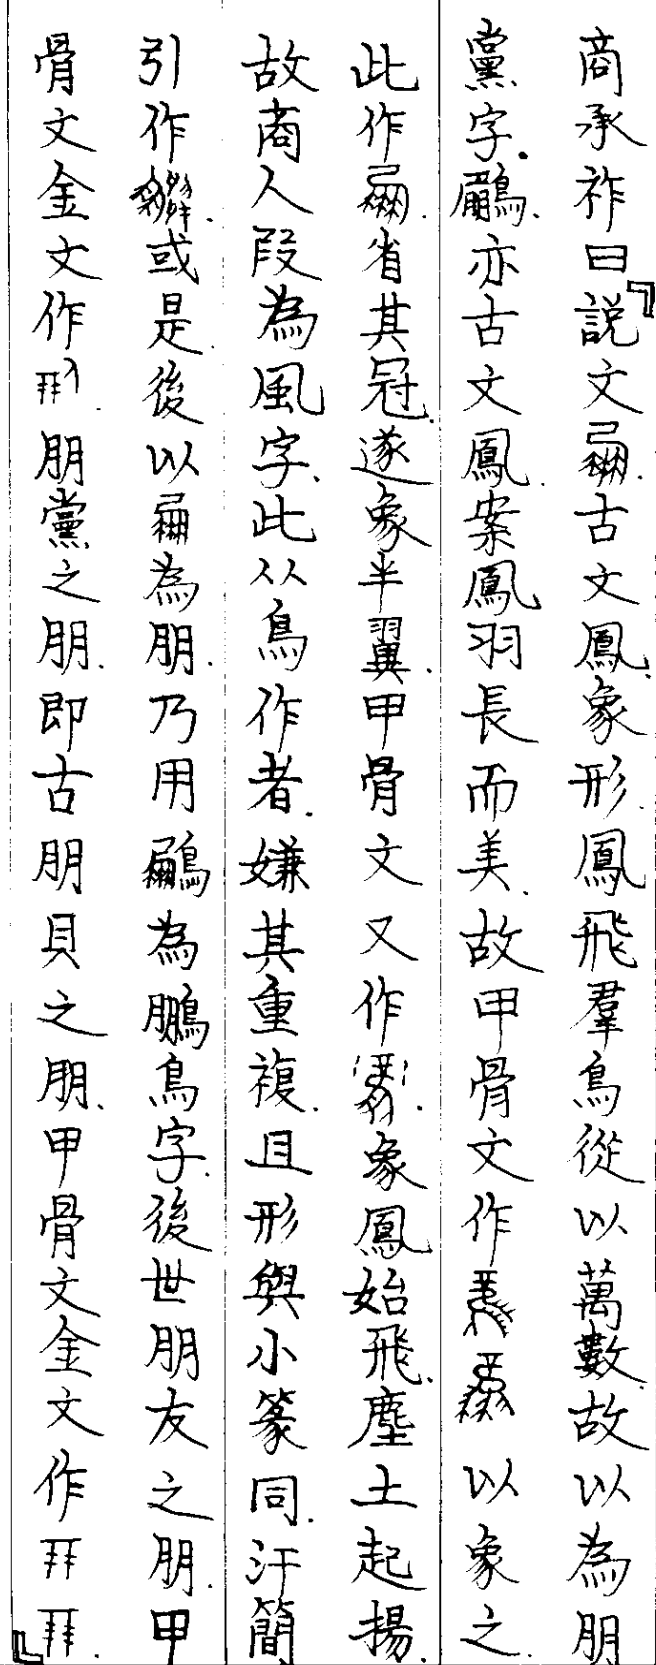 商承祚曰『説文古文鳳.象形.鳳飛羣鳥從以萬數.故以為朋
黨字.亦古文鳳.案鳳羽長而美.故甲骨文作以象之.
此作.省其冠.遂象半翼.甲骨文又作.象鳳始飛.塵土起揚.
故商人叚為風字.此从鳥作者.嫌其重複.且形與小篆同.汗簡
引作.或是.後以為朋.乃用為鵬鳥字.後世朋友之朋.甲
骨文金文作.朋黨之朋.即古朋貝之朋.甲骨文金文作.』